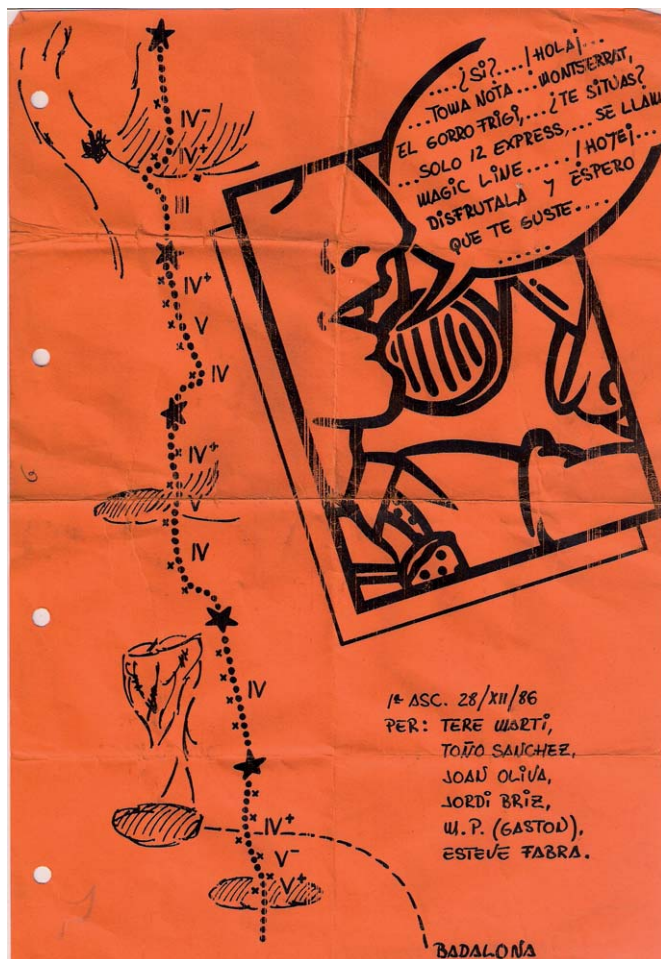 ....¿SI?....¡HOLA¡....
...TOMA NOTA...MONTSERRAT,
EL GORRO FRIGI,....¿TE SITUAS?
...SOLO 12 EXPRESS,...SE LLAM
MAGIC LINE.....¡HOTE¡...
DISFRUTALA Y ESPERO
QUE TE GUSTE....
.....
IV-
IV+
III
IV+
V
IV
IV+
V
IV
IV
IV+
V-
V+
1ª ASC. 28/XII/86
PER: TERE MARTI,
TOÑO SANCHEZ,
JOAN OLIVA,
JORDI BRIZ,
M.P. (GASTON),
ESTEVE FABRA.
BADALONA